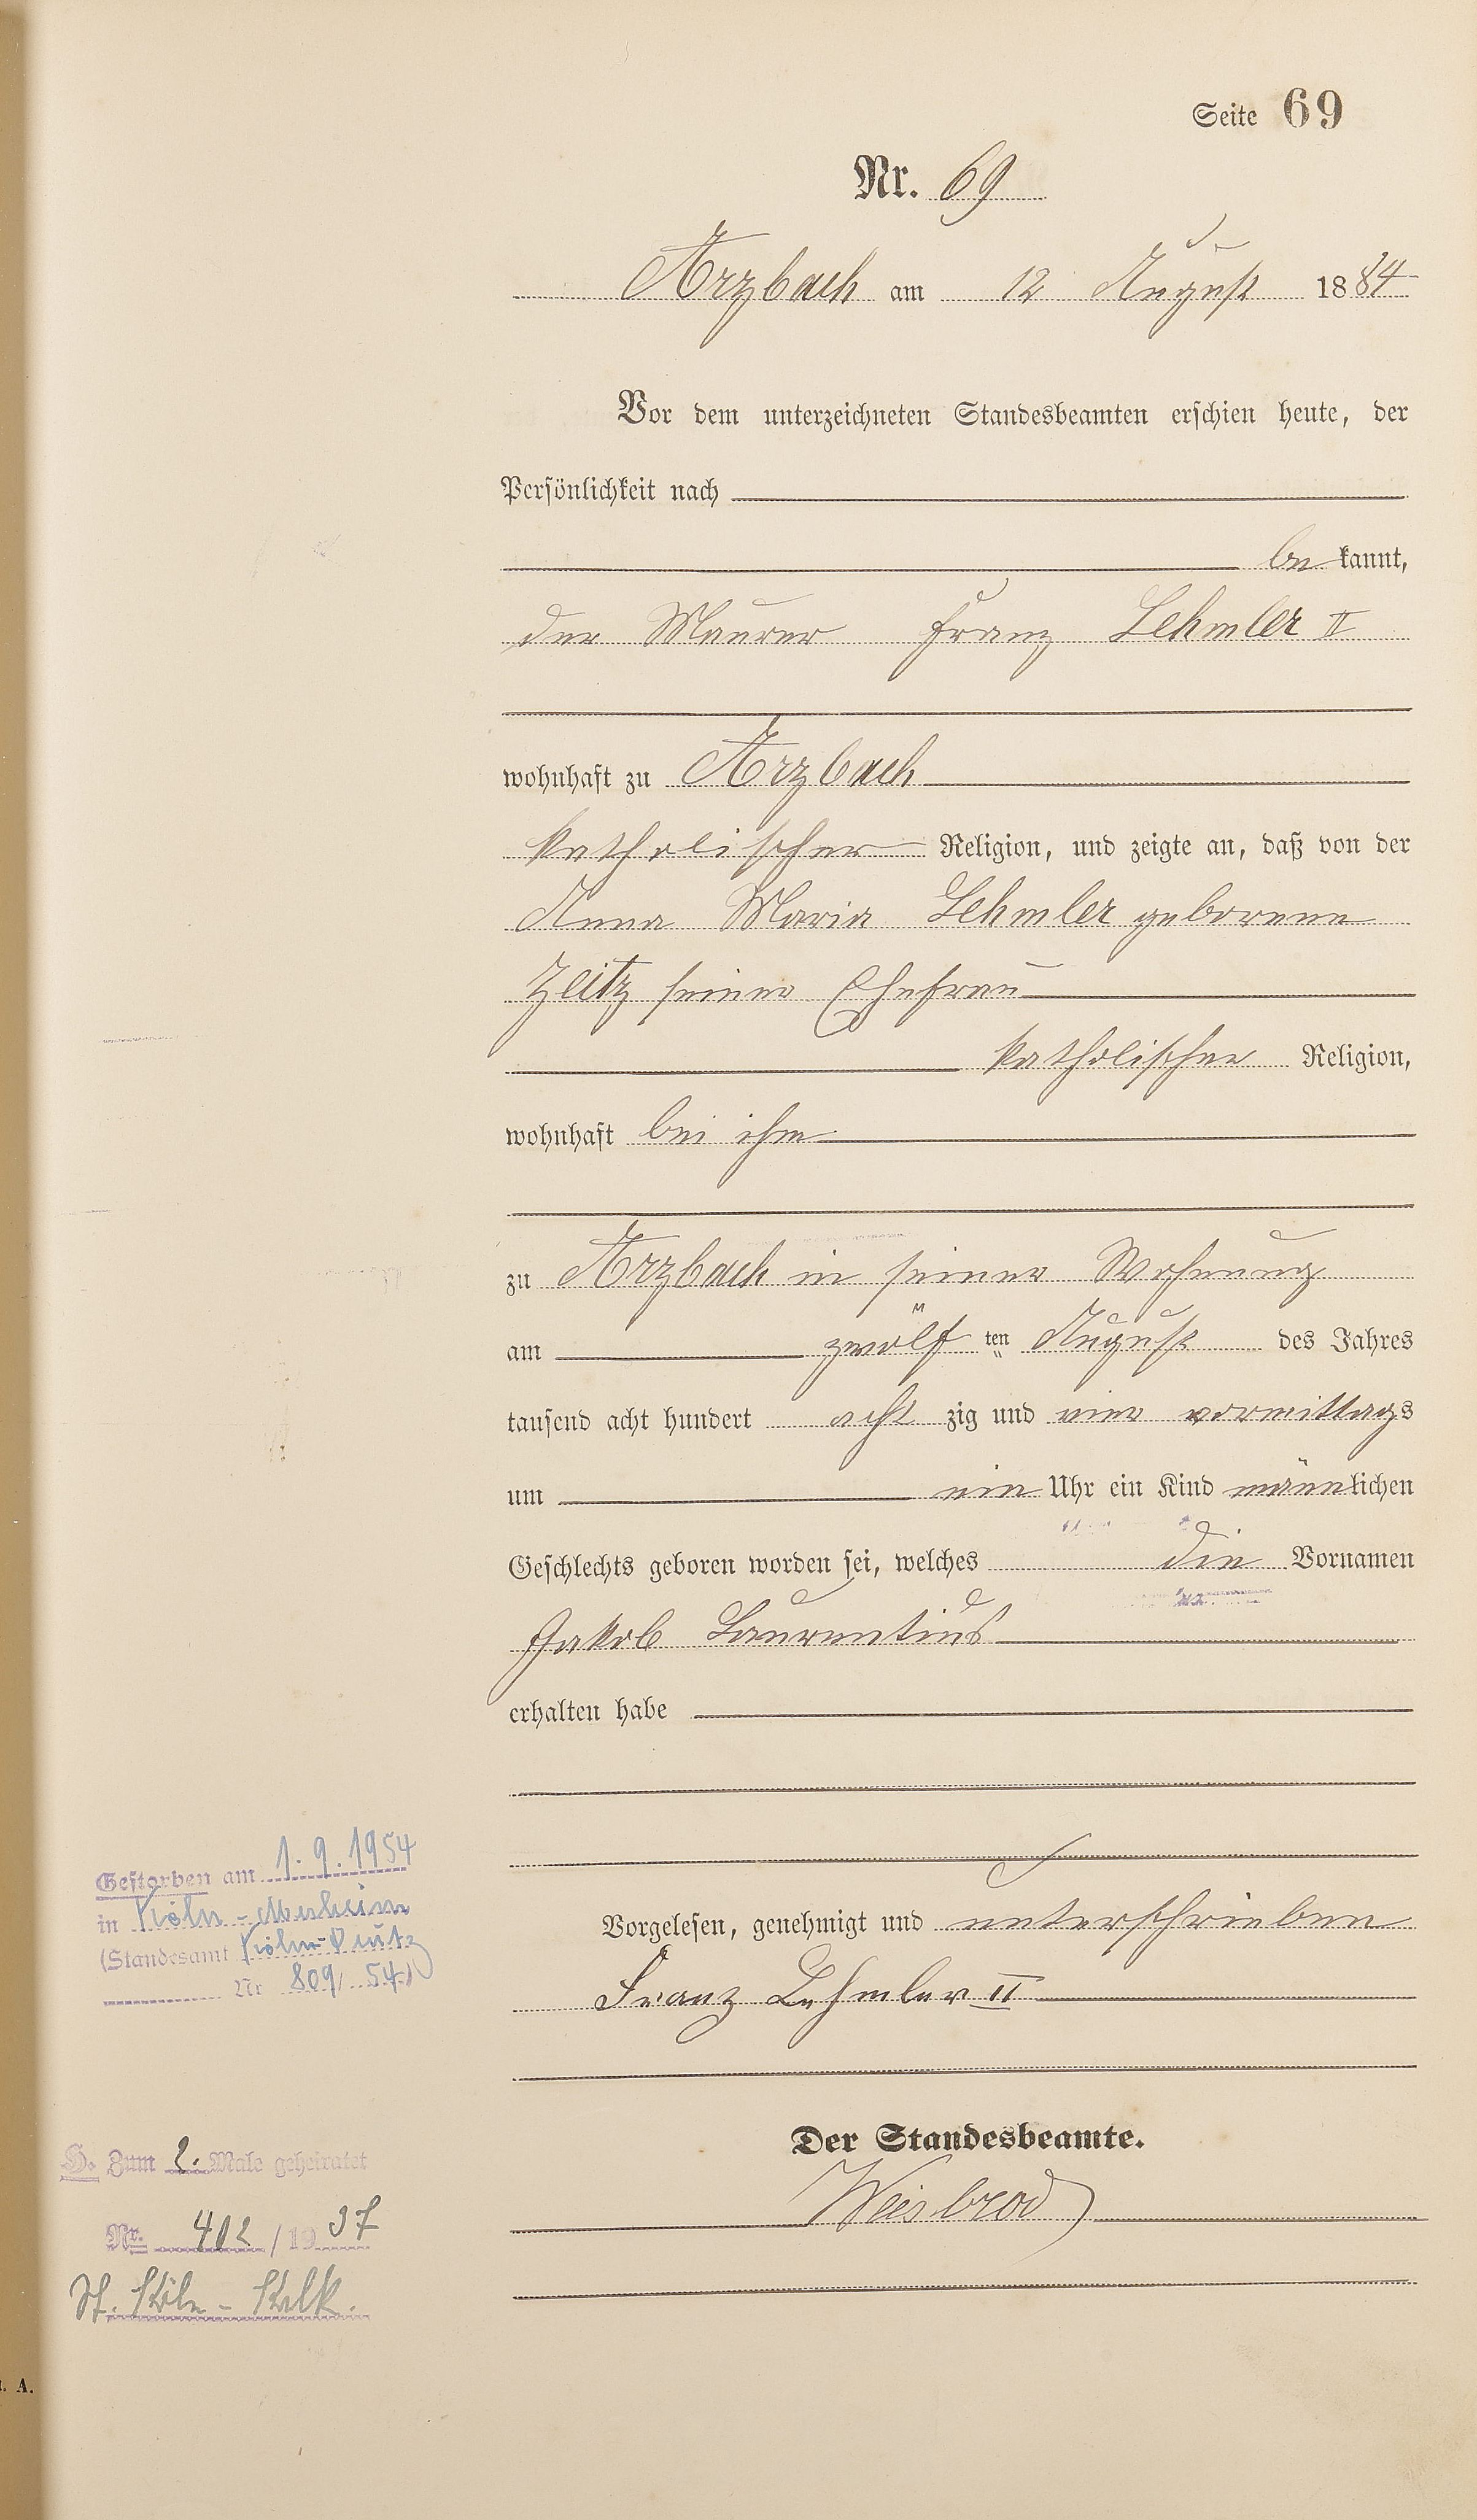 Seite 69
Nr. 69
Arzbach am 12 August 1884
Vor dem unterzeichneten Standesbeamten erschien heute, der
Persönlichkeit nach
bekannt,
der Maurer Franz Lehmler II
wohnhaft zu Arzbach
katholischer Religion, und zeigte an, daß von der
Anna Maria Lehmler geborene
Zeitz seiner Ehefrau
katholischer Religion,
wohnhaft bei ihm
zu Arzbach in seiner Wohnung
am zwölften August des Jahres
tausend acht hundert achtzig und vier vormittags
um ein Uhr ein Kind männlichen
Geschlechts geboren worden sei, welches die Vornamen
Jakob Laurentius
erhalten habe
Vorgelesen, genehmigt und unterschrieben
Franz Lehmler II
Der Standesbeamte.
Weisbrod
Gestorben am 1.9.1954
in Köln-Merheim
(Standesamt Köln-Deutz
Nr 809/54)
H. Zum 2. Male geheiratet
Nr. 402/1937
St. Köln-Kalk.